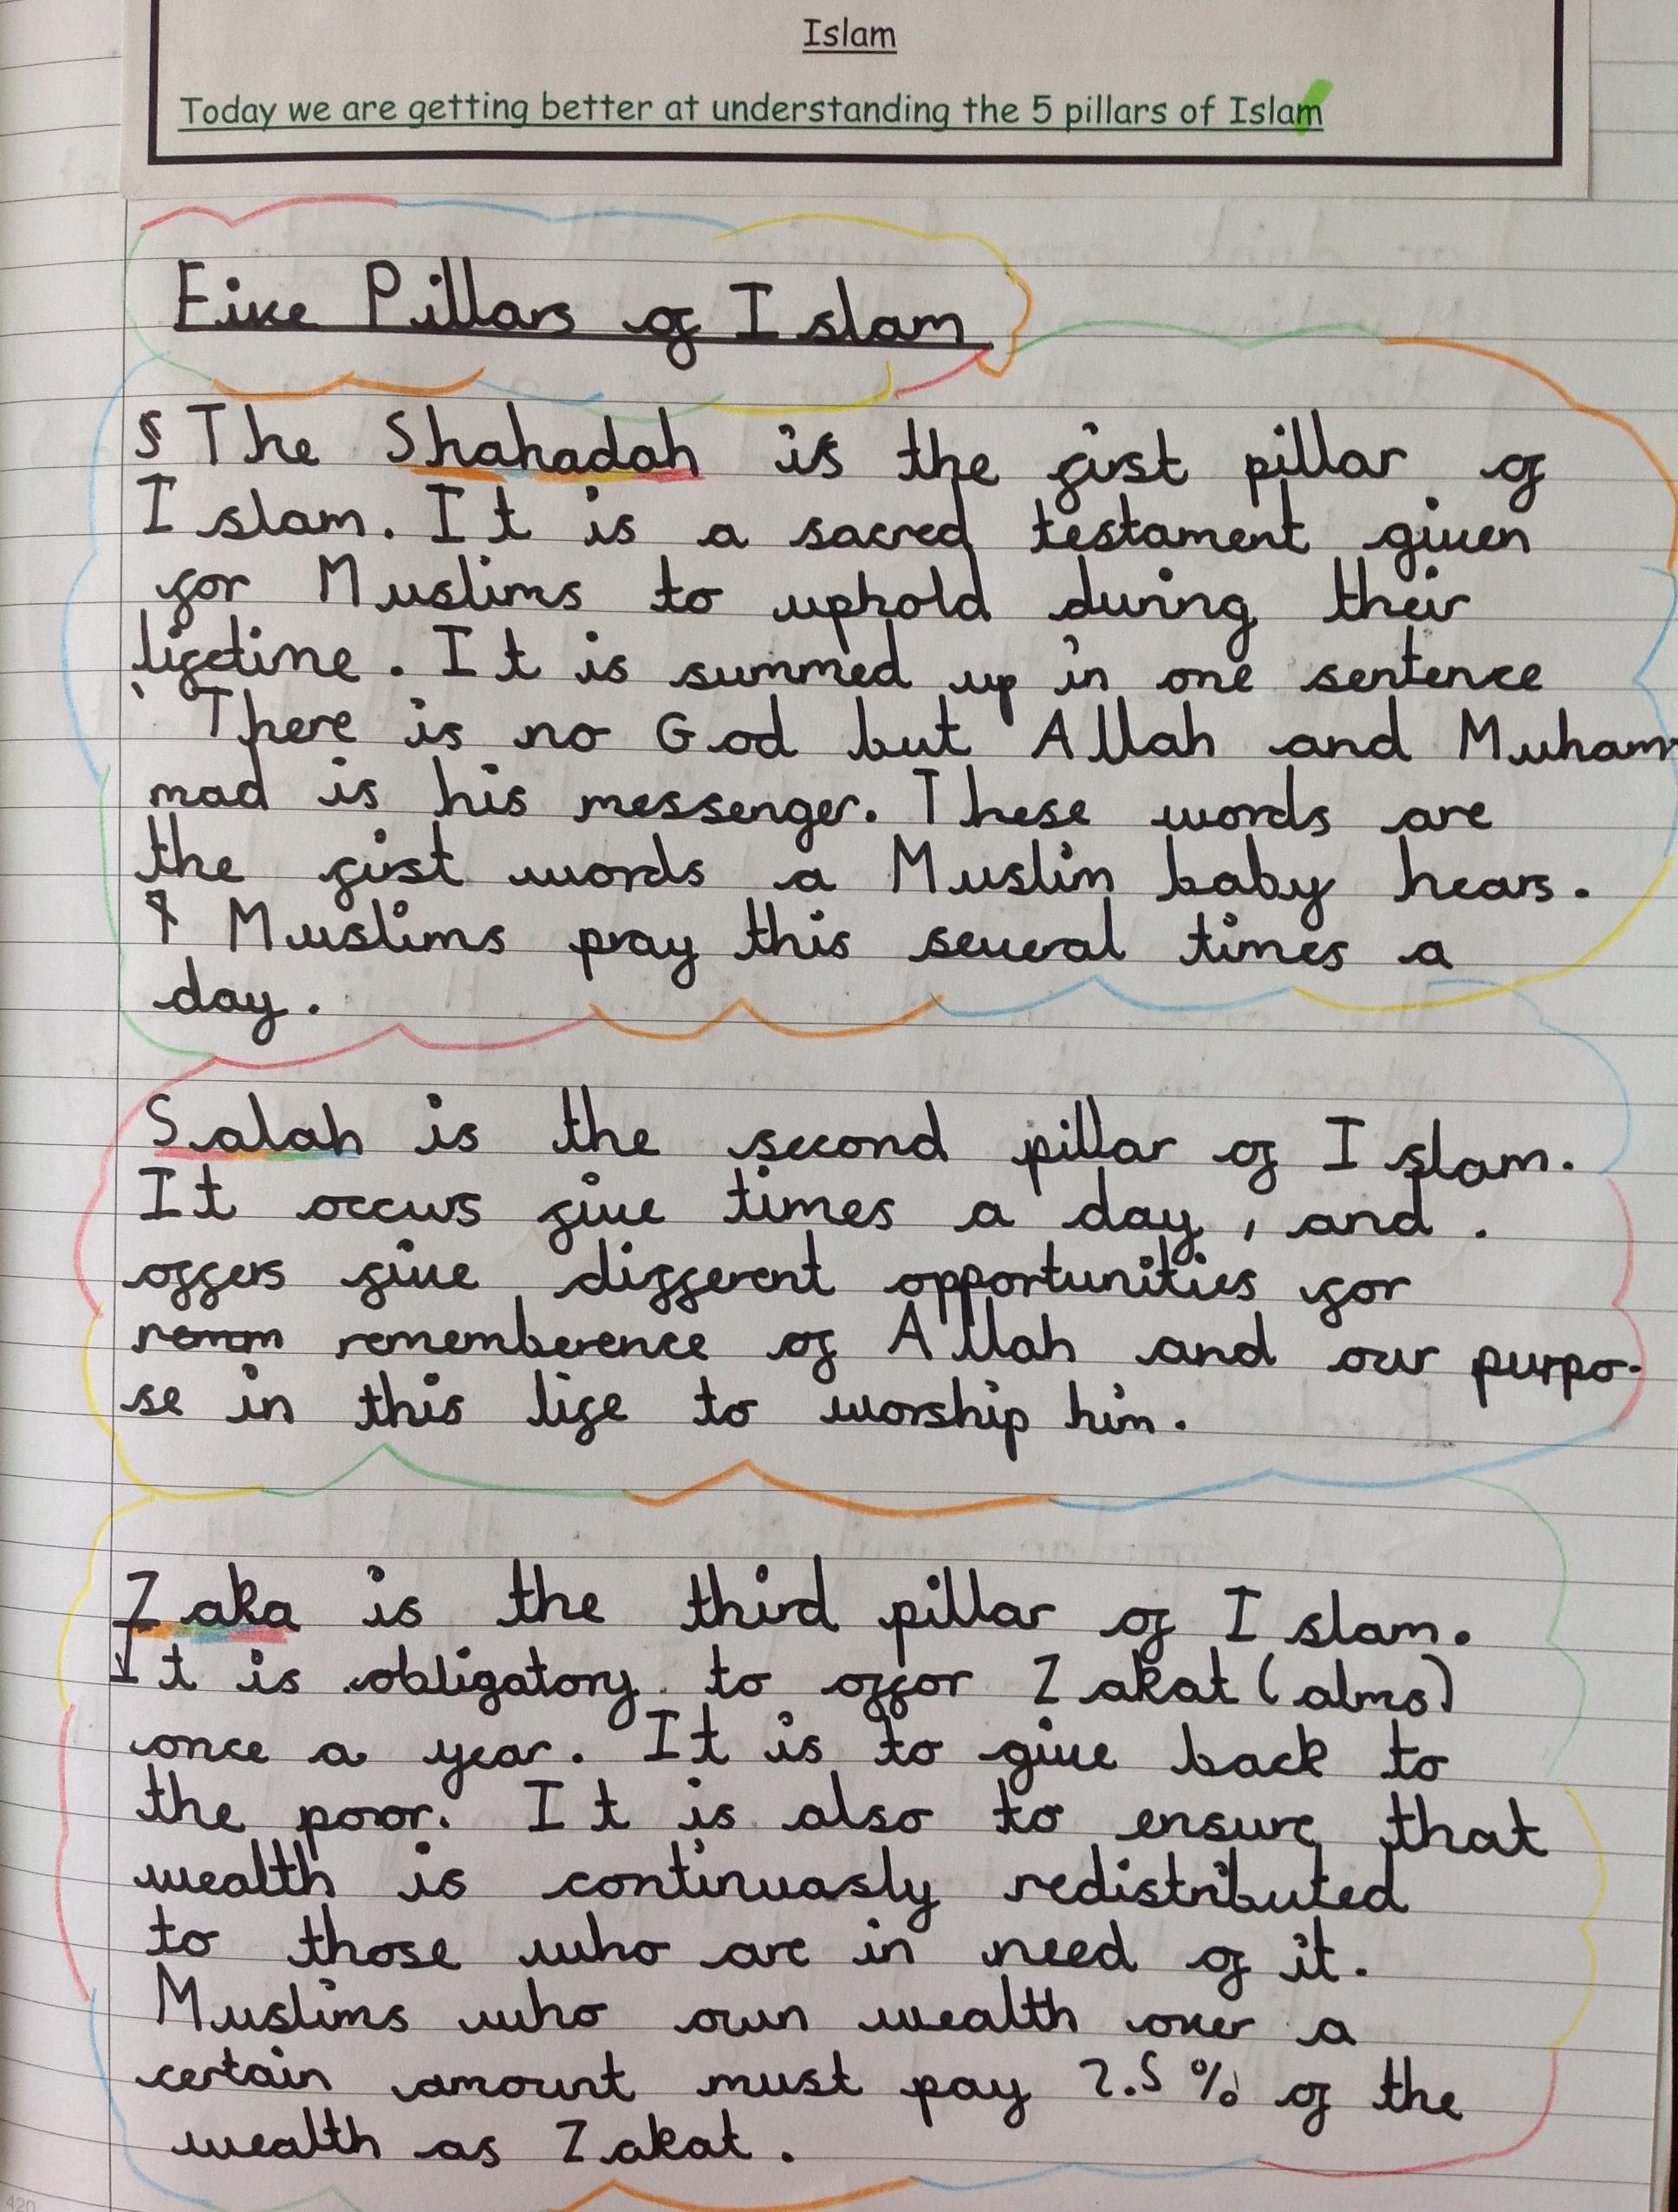 Islam
Today we are getting better at understanding the 5 pillars of Islam
Five Pillars of Islam
The Shahadah is the first pillar of
Islam. It is a sacred testament given
for Muslims to uphold during their
lifetime. It is summed up in one sentence
' There is no God but Allah and Muham-
mad is his messenger. These words are
the first words a Muslim baby hears.
Muslims pray this several times a
day.
Salah is the second pillar of Islam.
It occurs five times a day, and .
offers five different opportunities for
rememberence of Allah and our purpo-
se in this life to worship him.
Zaka is the third pillar of Islam.
It is obligatory to offor Zakat (alms)
once a year. It is to give back to
the poor. It is also to ensure that
wealth is continuasly redistributed
to those who are in need of it.
Muslims who own wealth over a
certain amount must pay 2.5% of the
wealth as Zakat.
420